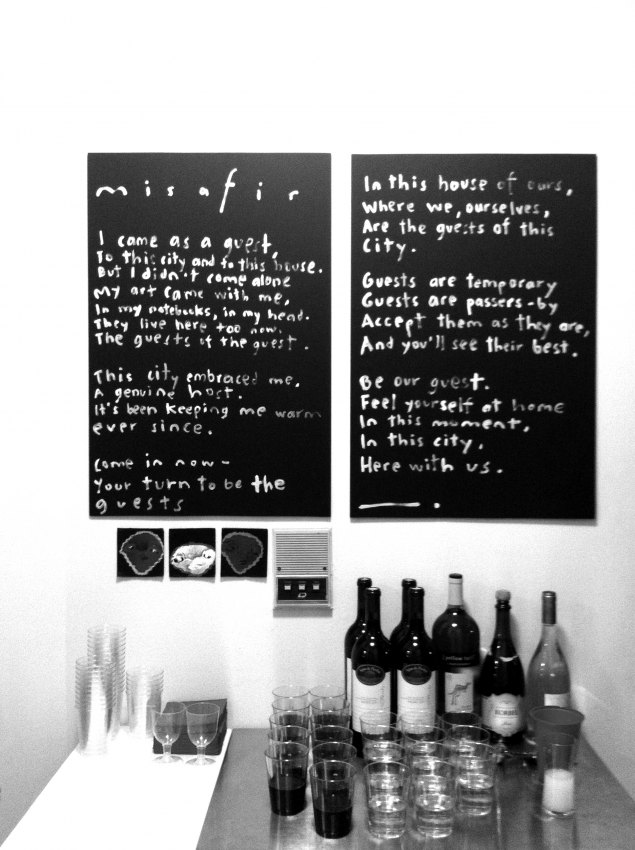 misafir
I came as a guest,
To this city and to this house.
But I didn't come alone
My art came with me,
In my notebooks, in my head.
They live here too now.
The guests of the guest.
This city embraced me,
A genuine host.
It's been keeping me warm
ever since.
Come in now-
Your turn to be the
guests
In this house of ours,
Where we, ourselves,
Are the guests of this
City.
Guests are temporary
Guests are passers-by
Accept them as they are,
And you'll see their best.
Be our guest.
Feel yourself at home
In this moment,
In this city,
Here with us.
KORBEL